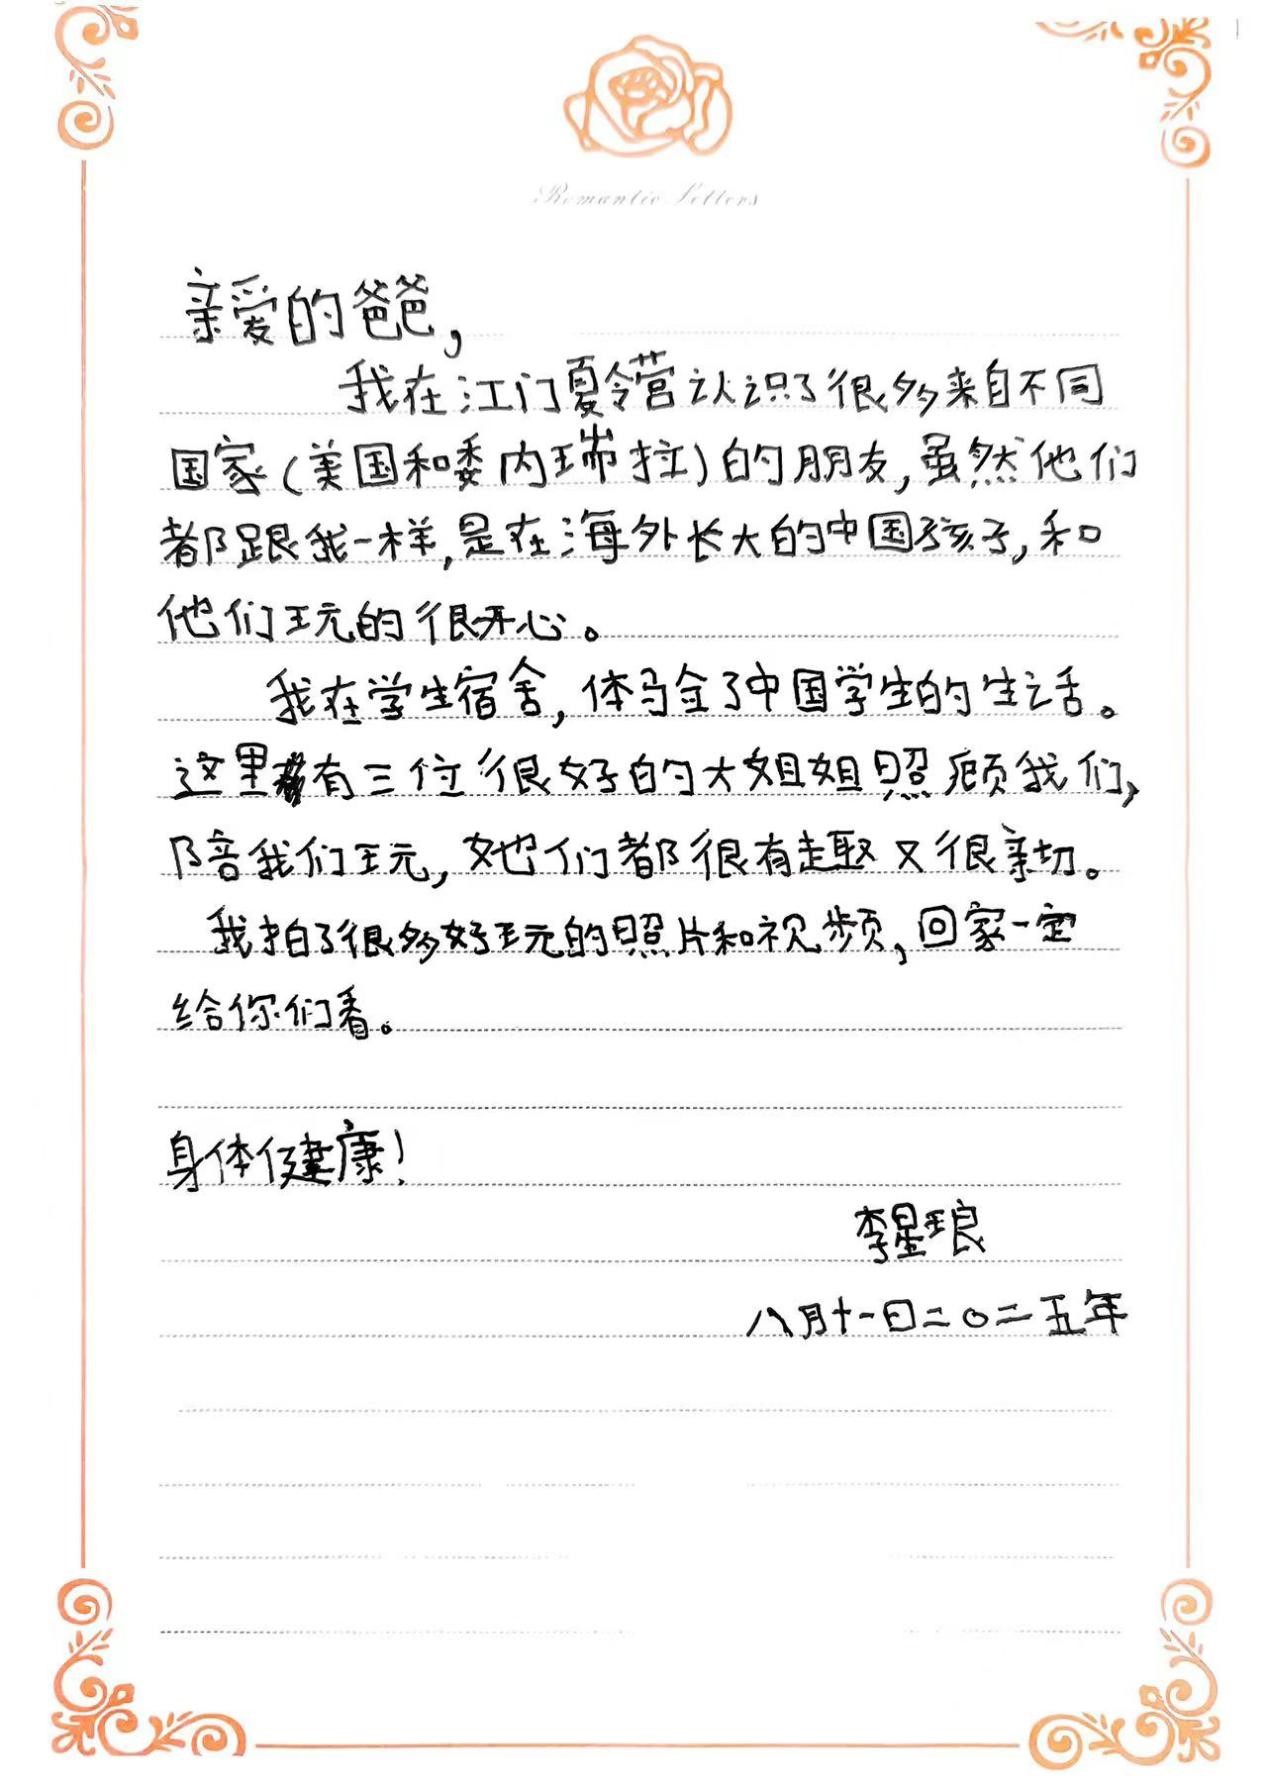 Romantic Letters
亲爱的爸爸,
我在江门夏令营认识了很多来自不同
国家(美国和委内瑞拉)的朋友,虽然他们
都跟我一样,是在海外长大的中国孩子,和
他们玩的很开心。
我在学生宿舍,体验了中国学生的生活。
这里有三位很好的大姐姐照顾我们,
陪我们玩,她们都很有趣又很亲切。
我拍了很多好玩的照片和视频,回家一定
给你们看。
身体健康!
李星琅
八月十一日二〇二五年